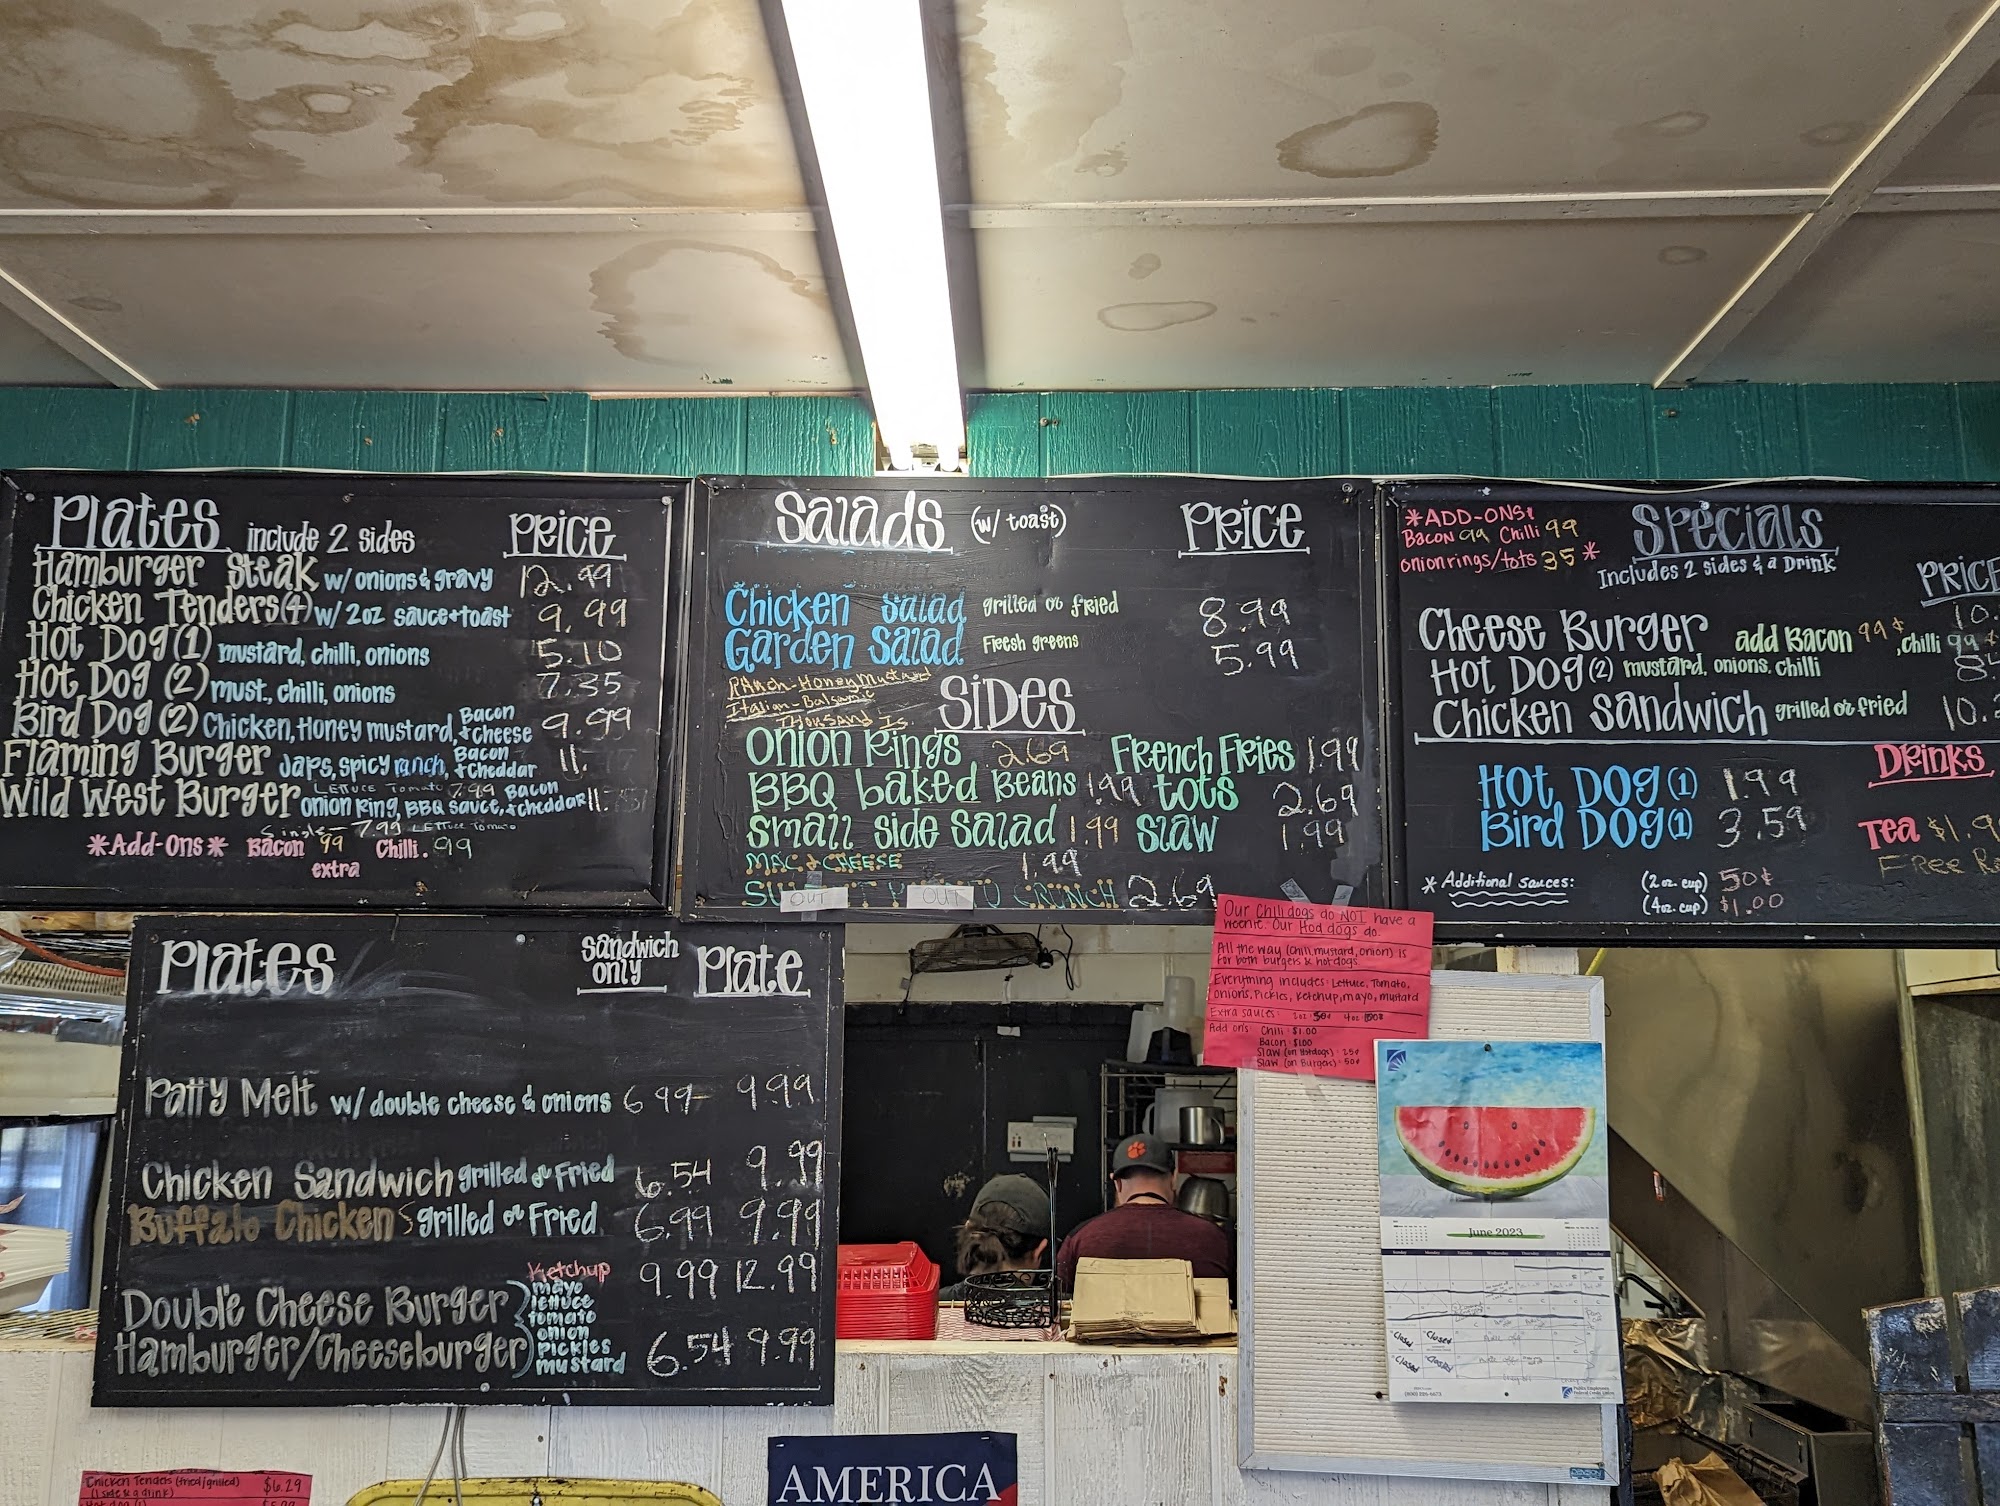 Plates include 2 sides PRICE
Hamburger Steak w/ onions & gravy 12.99
Chicken Tenders (4) w/ 2oz sauce + toast 9.99
Hot Dog (1) mustard, chilli, onions 5.10
Hot Dog (2) must, chilli, onions 7.35
Bird Dog (2) Chicken, Honey mustard, Bacon + cheese 9.99
Flaming Burger Japs, spicy ranch, Bacon + cheddar 11.
Lettuce Tomato 7.99
Wild West Burger onion ring, BBQ sauce, Bacon + cheddar 11.
Single - 7.99 Lettuce Tomato
*Add-Ons* Bacon 99 Chilli .99
extra
Salads (w/ toast) PRICE
Chicken Salad grilled or fried 8.99
Garden Salad Fresh greens 5.99
Ranch - Honey Mustard
Italian - Balsamic
Thousand Is.
Sides
Onion Rings 2.69 French Fries 1.99
BBQ baked Beans 1.99 tots 2.69
Small side Salad 1.99 Slaw 1.99
MAC & CHEESE 1.99
OUT OUT CRUNCH 2.69
*ADD-ONS!
Bacon 99 Chilli 99
onion rings/tots 35*
Specials
Includes 2 sides & a Drink
PRICE
Cheese Burger add Bacon 99¢, chilli 99¢ 10.
Hot Dog (2) mustard, onions, chilli 8
Chicken Sandwich grilled or fried 10.
Hot Dog (1) 1.99
Bird Dog (1) 3.59
Drinks
Tea $1.9
Free Re
* Additional sauces: (2 oz. cup) 50¢
(4 oz. cup) $1.00
Plates sandwich only Plate
Patty Melt w/ double cheese & onions 6.99 9.99
Chicken Sandwich grilled or Fried 6.54 9.99
Buffalo Chicken S grilled or Fried 6.99 9.99
Double Cheese Burger 9.99 12.99
Hamburger/Cheeseburger 6.54 9.99
Ketchup
mayo
lettuce
tomato
onion
pickles
mustard
Our Chili dogs do NOT have a
weenie. Our Hod dogs do.
All the way (chili, mustard, onion) is
for both burgers & hotdogs
Everything includes: Lettuce, Tomato,
onions, Pickles, Ketchup, mayo, mustard
Extra sauces: 2oz 50¢ 4oz
Add ons: Chili $1.00
Bacon $1.00
Slaw (on Hotdogs) 25¢
Slaw (on Burgers) 50¢
June 2023
Sunday Monday Tuesday Wednesday Thursday Friday Saturday
Closed Closed
Closed Closed
Chicken Tenders (fried/grilled) $6.29
(1 side & a drink)
AMERICA